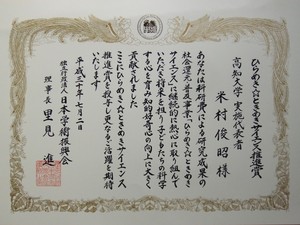 ひらめき☆ときめきサイエンス推進賞
高知大学 実施代表者
米村俊昭様
あなたは科研費による研究成果の
社会還元・普及事業「ひらめき☆ときめき
サイエンス」に継続的に熱心に取り組んで
いただき将来を担う子どもたちの科学
する心を育み知的好奇心の向上に大きく
貢献されました
ここにひらめき☆ときめきサイエンス
推進賞を授与し更なるご活躍を期待
いたします
平成三十年七月二日
独立行政法人日本学術振興会
理事長 里見進